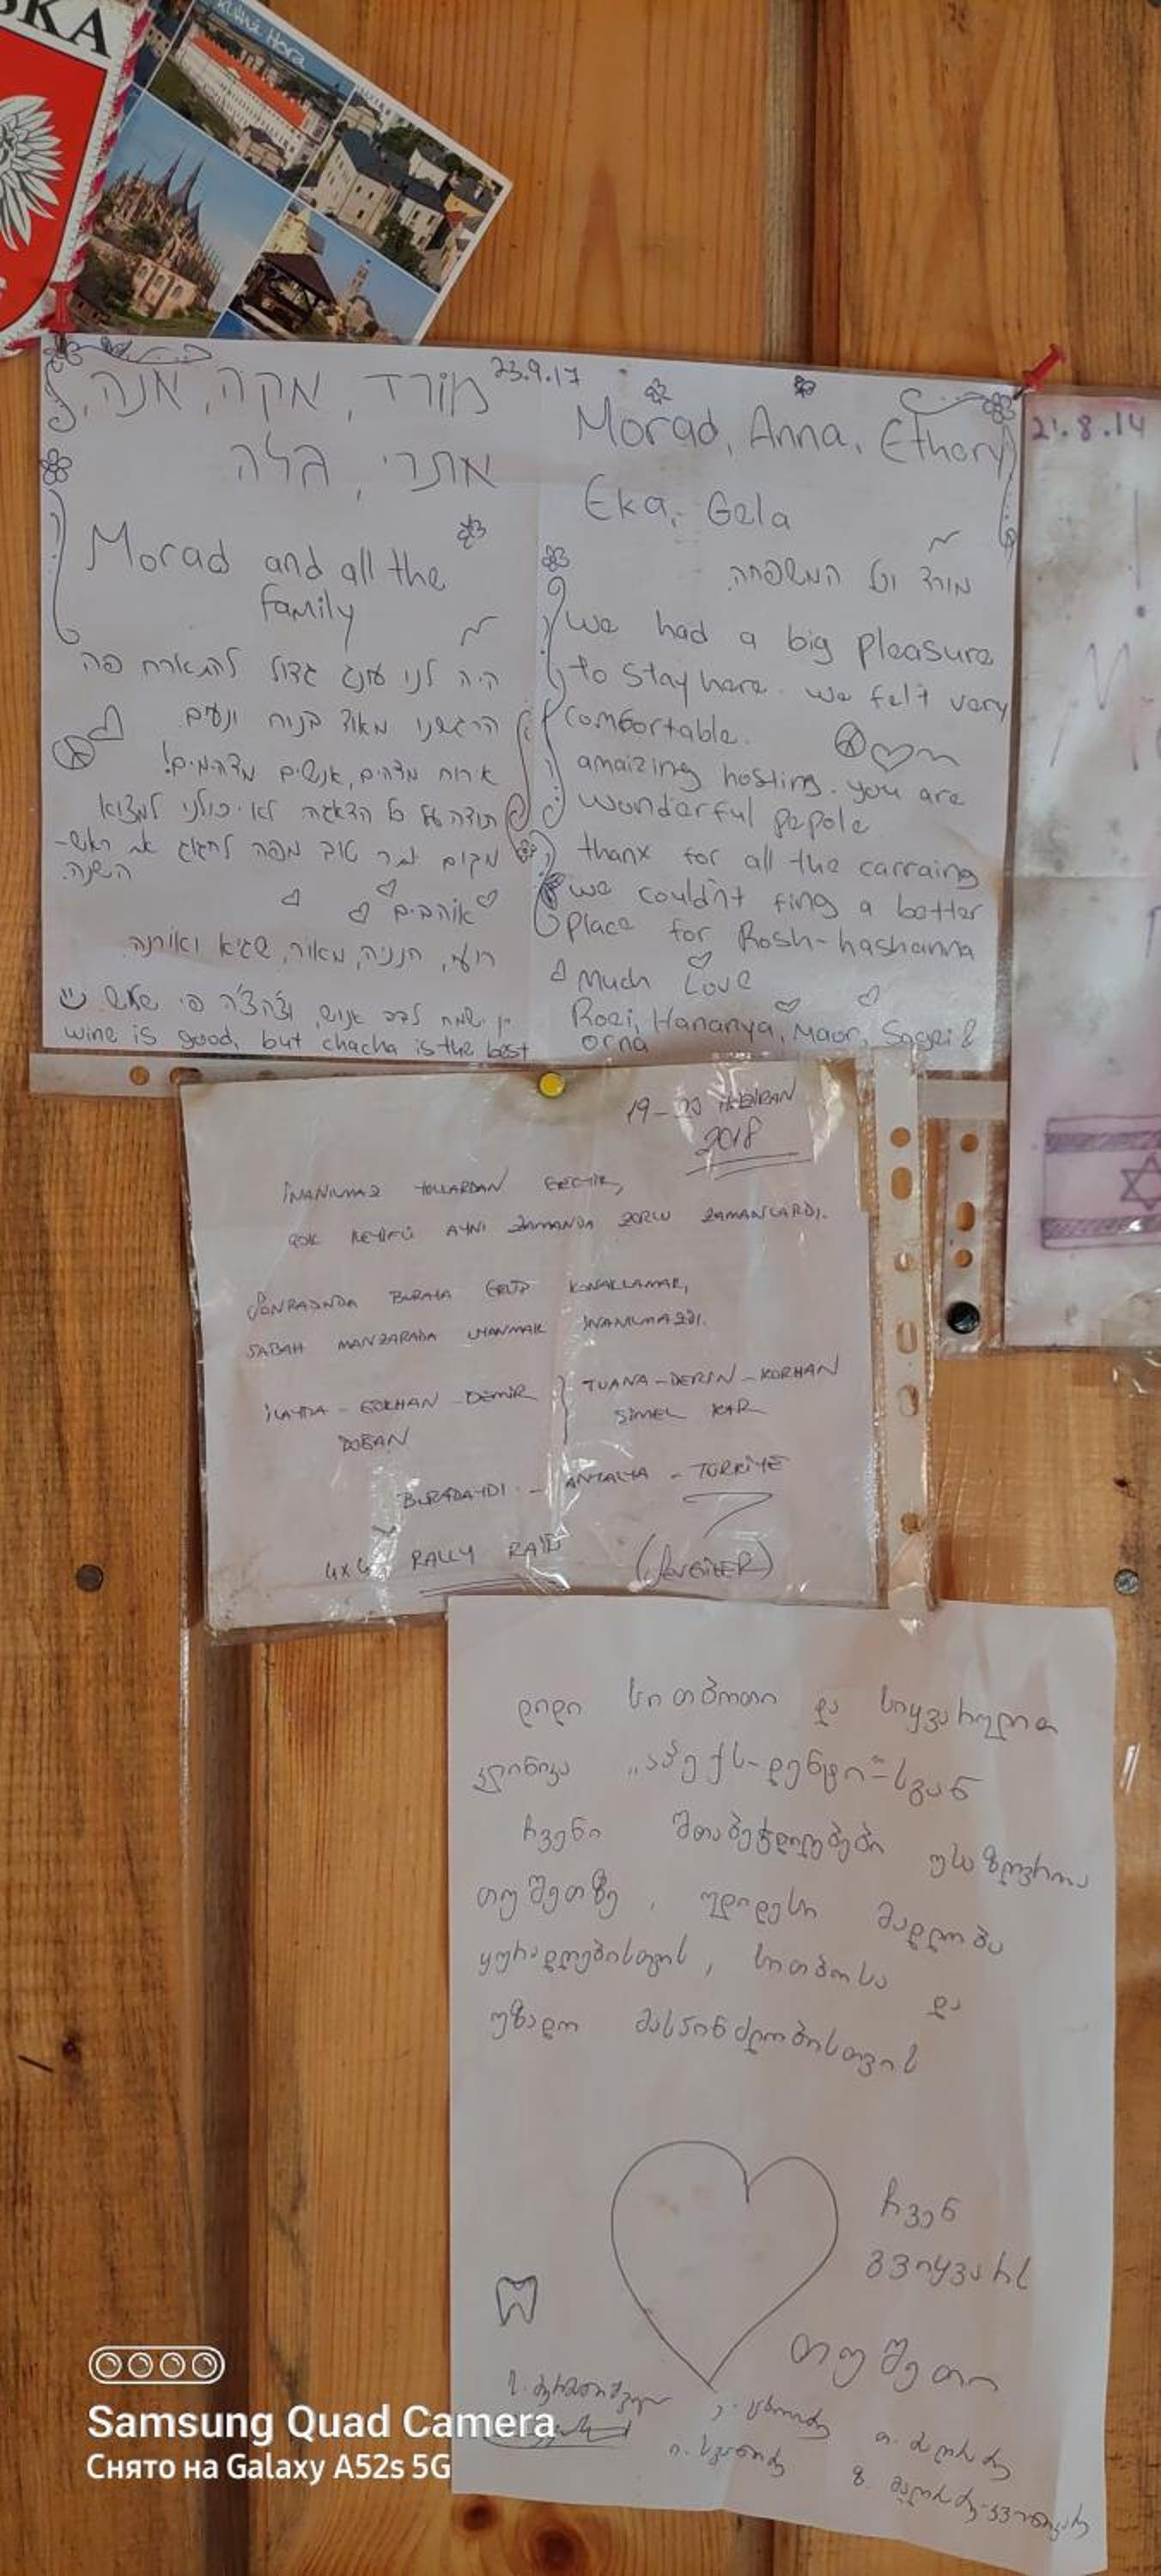 SKA
Kutná Hora
23.9.17
מורד, אקה, אנה,
אתרי, גלה
Morad and all the
family
היה לנו עונג גדול להתארח פה
הרגשנו מאוד בנוח ונעים.
אירוח מדהים, אנשים מדהימים!
תודה על כל הדאגה לא יכולנו למצוא
מקום יותר טוב מפה לחגוג את ראש-
השנה.
אוהבים
רועי, חנניה, מאור, שגיא ואורנה
יין ישמח לבב אנוש, וצ'צ'ה פי שלש
wine is good, but chacha is the best
Morad, Anna, Ethery
Eka, Gela
מורד וכל המשפחה.
we had a big pleasure
to stay here. we felt very
comfortable.
amaizing hosting. you are
wonderful pepole
thanx for all the carraing
we couldn't fing a better
place for Rosh-hashanna
Much Love
Roei, Hananya, Maor, Sagei &
orna
21.8.14
19-20 HAZİRAN
2018
İNANILMAZ YOLLARDAN GEÇTİK,
ÇOK KEYİFLİ AYNI ZAMANDA ZORLU ZAMANLARDI.
SONRASINDA BURAYA GELİP KONAKLAMAK,
SABAH MANZARADA UYANMAK İNANILMAZDI.
İLAYDA - GÖKHAN - DEMİR
DOĞAN
TUANA - DERİN - KORHAN
SİMEL KAR
BURADAYDI - ANTALYA - TÜRKİYE
4x4 RALLY RAID
დიდი სითბოთი და სიყვარულით
კლინიკა „აპექს-დენტი"-სგან
ჩვენი შთაბეჭდილებები უსაზღვროა
თუშეთზე, უდიდესი მადლობა
ყურადღებისთვის, სითბოსა და
უზადო მასპინძლობისთვის
ჩვენ
გვიყვარს
თუშეთი
Samsung Quad Camera
Снято на Galaxy A52s 5G